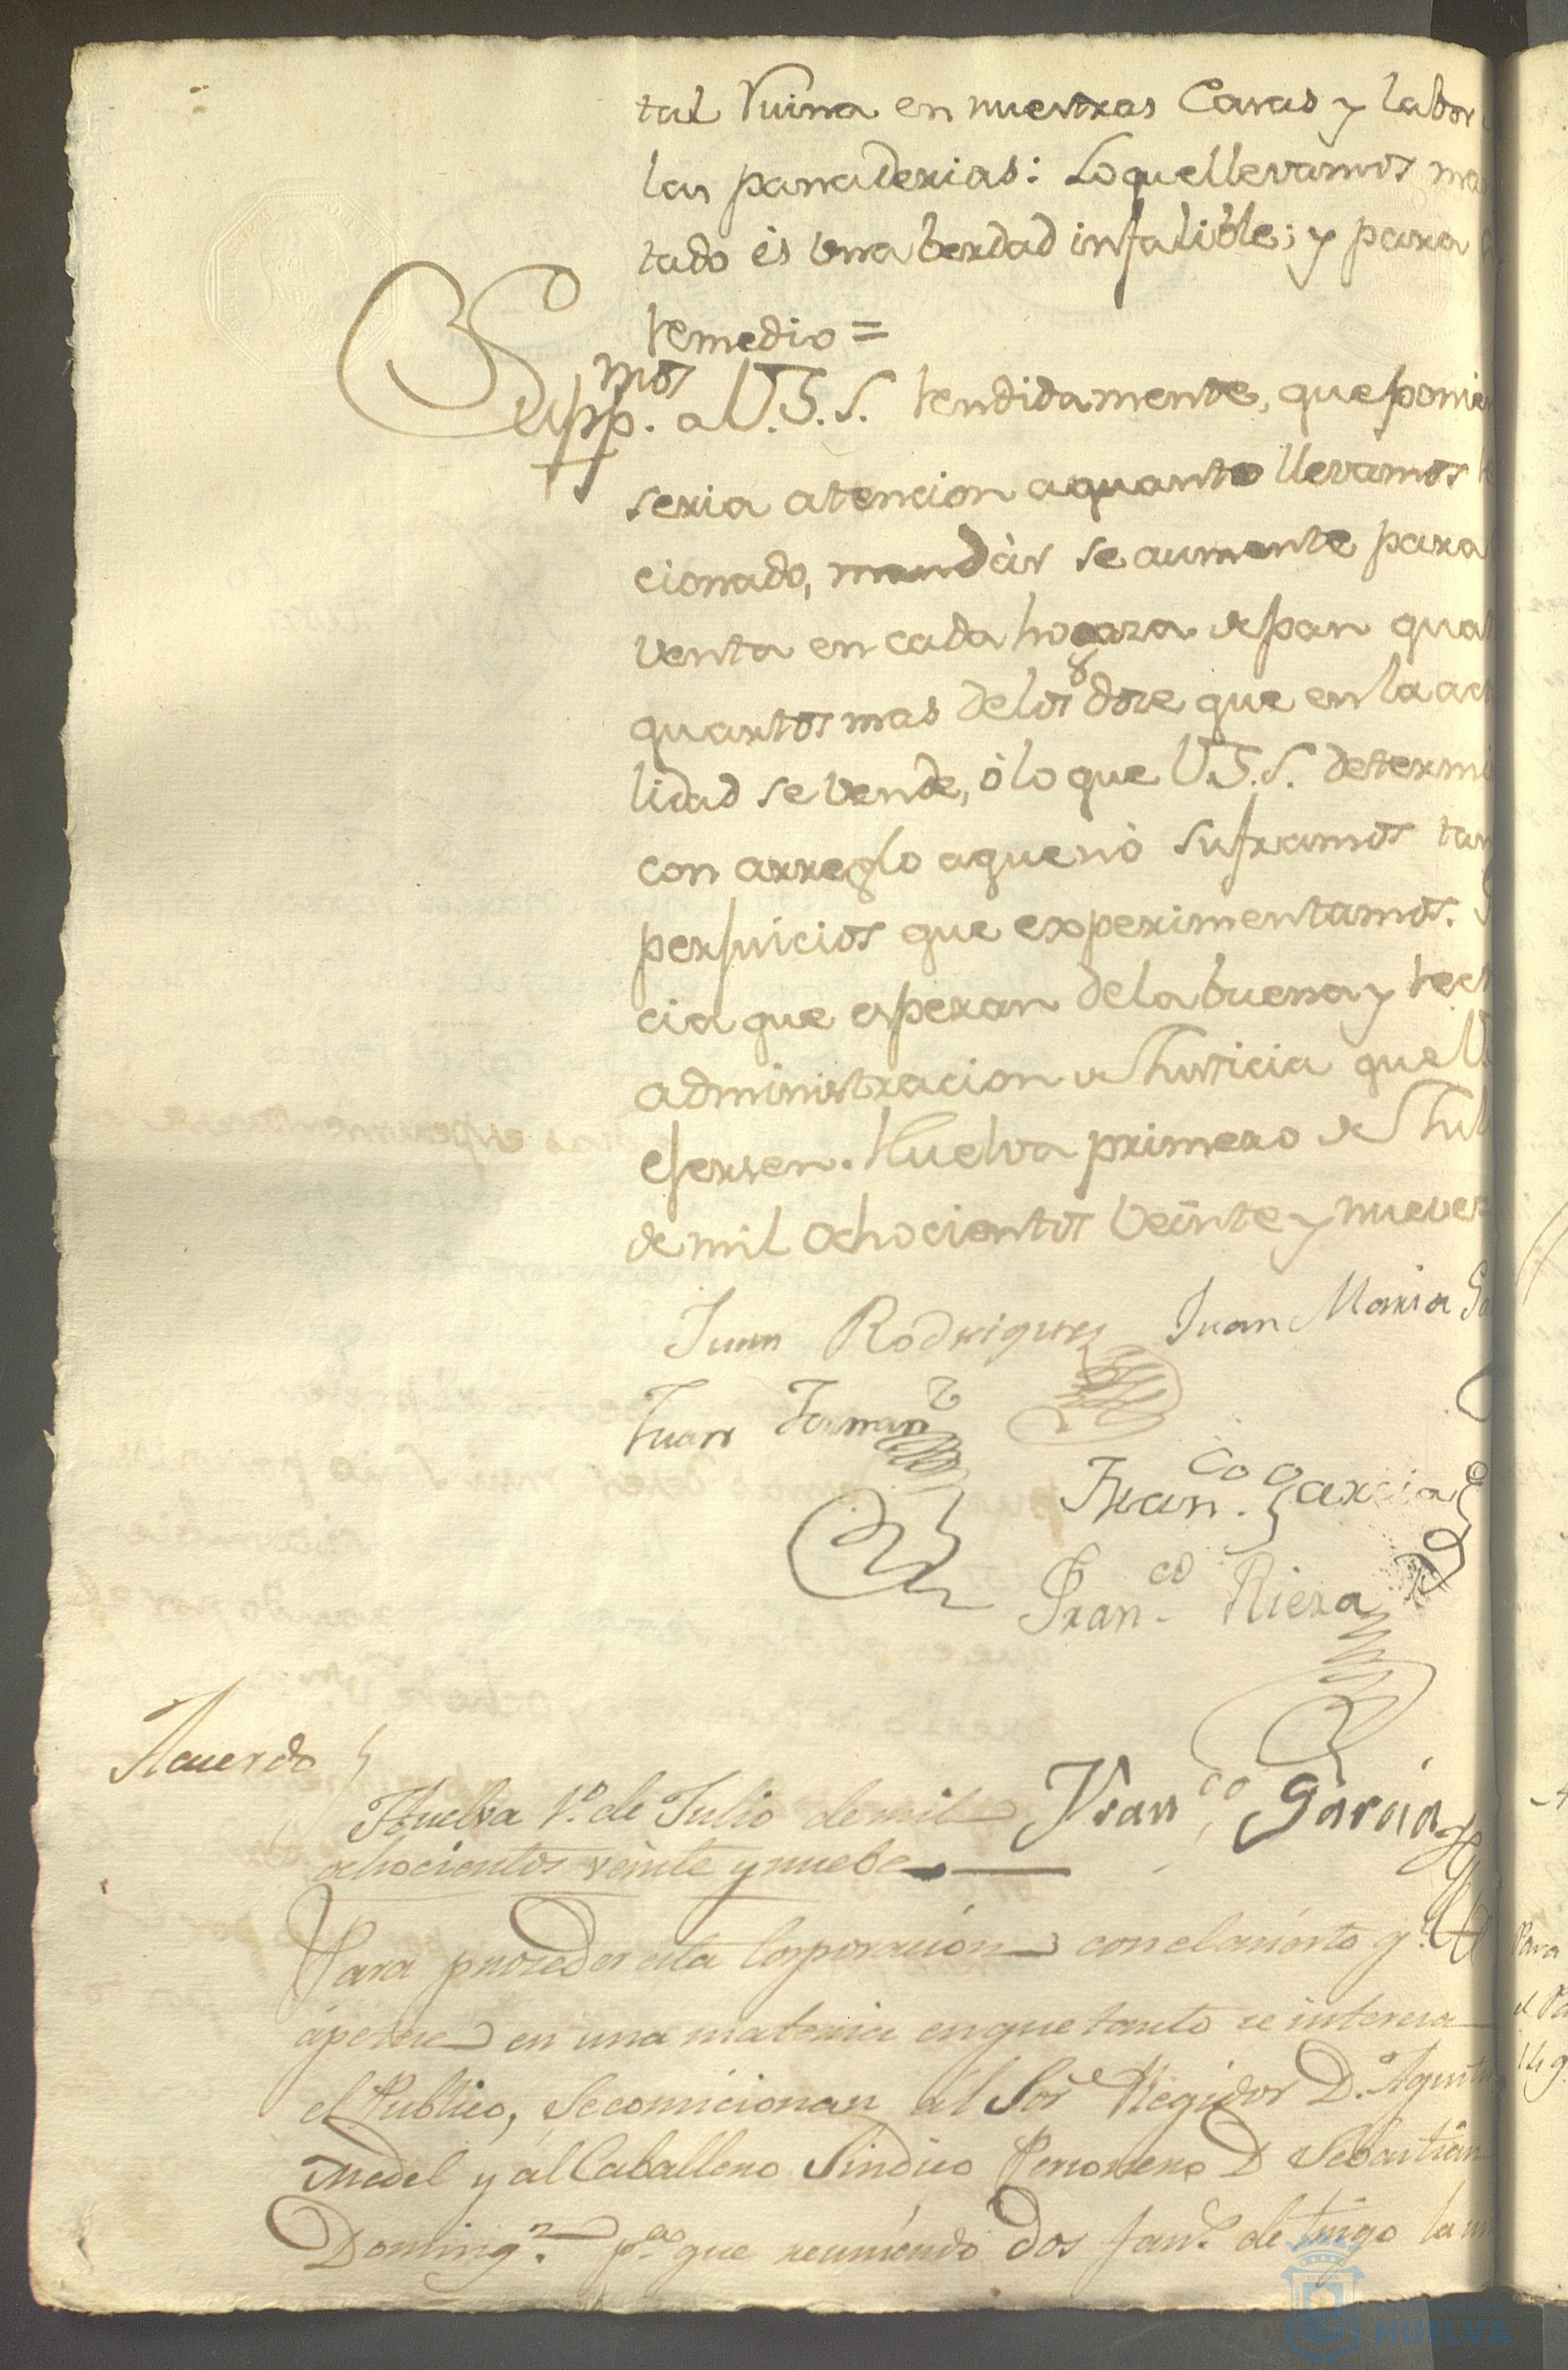 tal Ruina en nuestras Casas y labor
las panaderias: Lo que llevamos ma
tado és una berdad infalible; y para
remedio =
Supp.mos a V.S.S. rendidamente, que ponien
seria atencion a quanto llevamos
cionado, mandàr se aumente para
venta en cada hogaza de pan quat
quartos mas de los doze que en la act
lidad se vende, ó lo que V.S.S. determi
con arreglo a que nó suframos tan
perjuicios que experimentamos.
cia que esperan de la buena y rect
administracion de Justicia que V.
ejersen. Huelva primero de Jul
de mil ochocientos veinte y nueve
Juan Rodriguez Juan Maria
Juan
Fran.co Garcia
Fran.co Riera
Fran.co Garcia
Acuerdo
Huelva 1º. de Julio de mil
ochocientos veinte y nuebe
Para proceder esta Corporacion con el acierto q.e
ápetece en una materia en que tanto se interesa
el Publico, Se comicionan al Sor. Regidor D. Agustin
Medel y al Caballero Sindico Personero D Sebastian
Doming.z p.a que reuniendo dos fan.s de trigo la un
Para
HUELVA